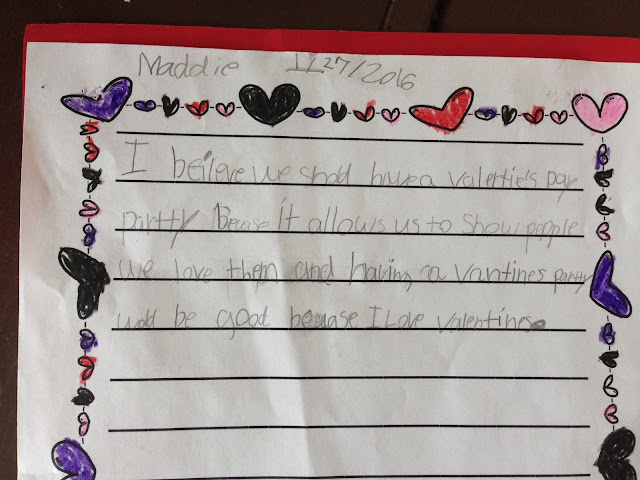 Maddie 1/27/2016
I beileve we shold have a valentie's pay
partty Becase it allows us to show people
we love them and having a vantines partty
wold be good becuase I Love valentines.